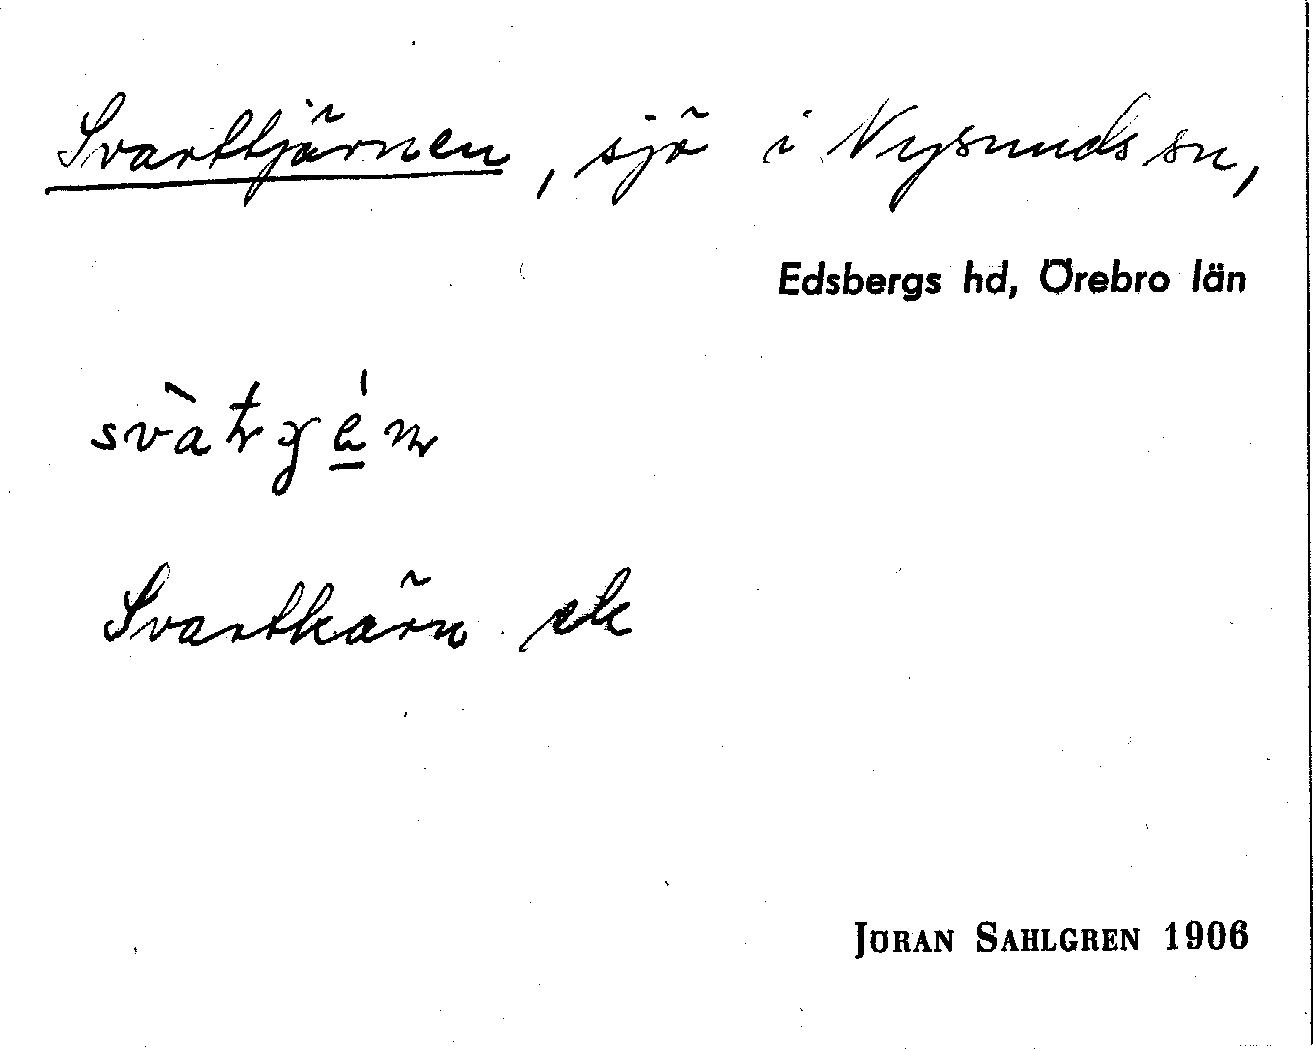 Svarttjärnen, sjö i Nysunds sn,
Edsbergs hd, Örebro län
Svartkärn ek
JÖRAN SAHLGREN 1906